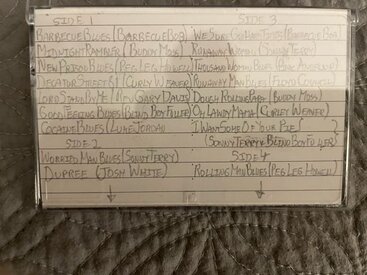 SIDE 1
BARBECUE BLUES (BARBECUE BOB)
MIDNIGHT RAMBLER (BUDDY MOSS)
NEW PRISON BLUES (PEG LEG HOWELL)
DECATUR STREET 81 (CURLY WEAVER)
LORD STAND BY ME (REV. GARY DAVIS)
BLUES (BLIND BOY FULLER)
COCAINE BLUES (LUKE JORDAN)
SIDE 2
WORRIED MAN BLUES (SONNY TERRY)
DUPREE (JOSH WHITE)
SIDE 3
WE SURE GOT HARD TIMES (BARBECUE BOB)
RUNAWAY WOMAN (SONNY TERRY)
THOUSAND WOMAN BLUES (PINK ANDERSON)
RUNAWAY MAN BLUES (FLOYD COUNCIL)
DOUGH ROLLING PAPA (BUDDY MOSS)
OH LAWDY MAMA (CURLEY WEAVER)
I WANT SOME OF YOUR PIE (
(SONNY TERRY & BLIND BOY FULLER)
SIDE 4
ROLLING MAN BLUES (PEG LEG HOWELL)